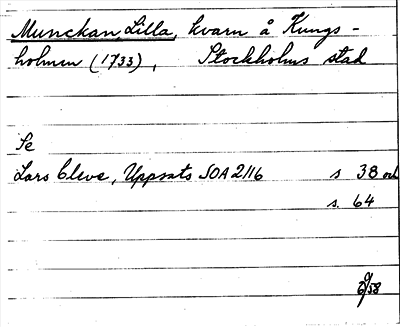 Munckan, Lilla, kvarn å Kungs-
holmen (1733), Stockholms stad
Se
Lars Cleve, Uppsats SOA 2116 s 38 och
s. 64
58